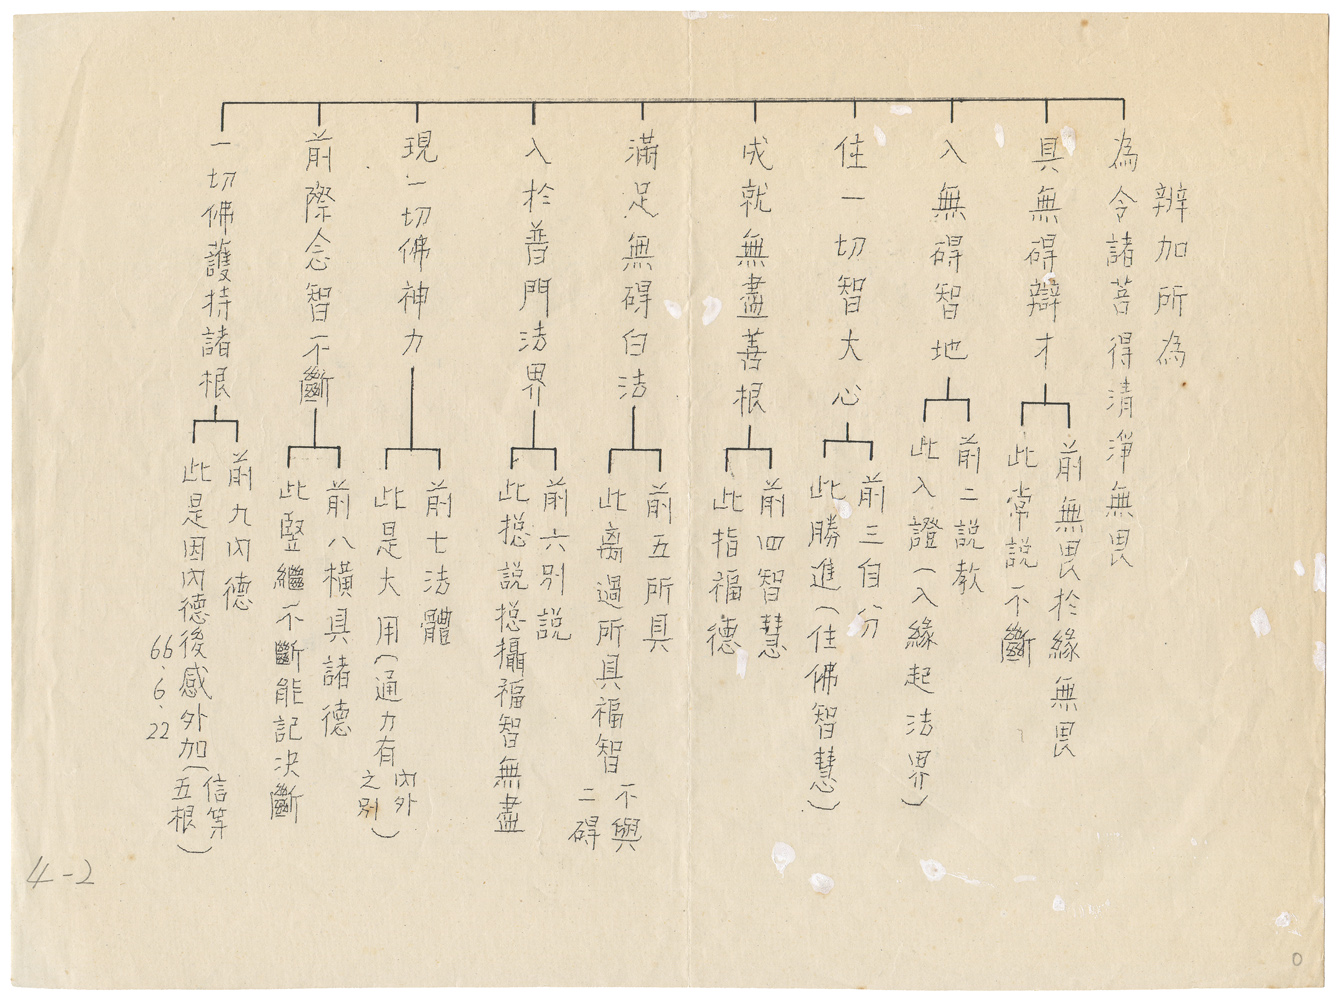 辨加所為
為令諸菩得清淨無畏
具無碍辯才
前無畏於緣無畏
此常說不斷
入無碍智地
前二說教
此入證(入緣起法界)
住一切智大心
前三自分
此勝進(住佛智慧)
成就無盡善根
前四智慧
此指福德
滿足無碍白法
前五所具
此离過所具福智
不與
二碍
入於普門法界
前六別說
此摠説摠攝福智無盡
現一切佛神力
前七法體
此是大用(通力有
內外
之別)
前際念智不斷
前八橫具諸德
此豎繼不斷能記決斷
一切佛護持諸根
前九內德
此是因內德後感外加(
信等
五根)
66.6.22
4-2
0